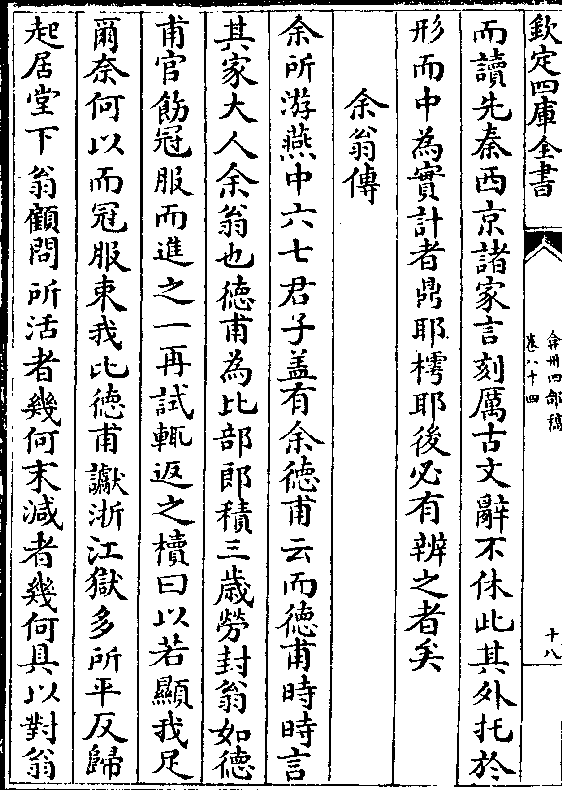 欽定四庫全書
弇州四部稿
卷八十四
十八
而讀先秦西京諸家言刻厲古文辭不休此其外托於
形而中為實計者鼎耶樗耶後必有辨之者矣
余翁傳
余所游燕中六七君子盖有余德甫云而德甫時時言
其家大人余翁也德甫為比部郎積三歲勞封翁如德
甫官飭冠服而進之一再試輒返之櫝曰以若顯我足
爾奈何以而冠服束我比德甫讞浙江獄多所平反歸
起居堂下翁顧問所活者幾何末減者幾何具以對翁